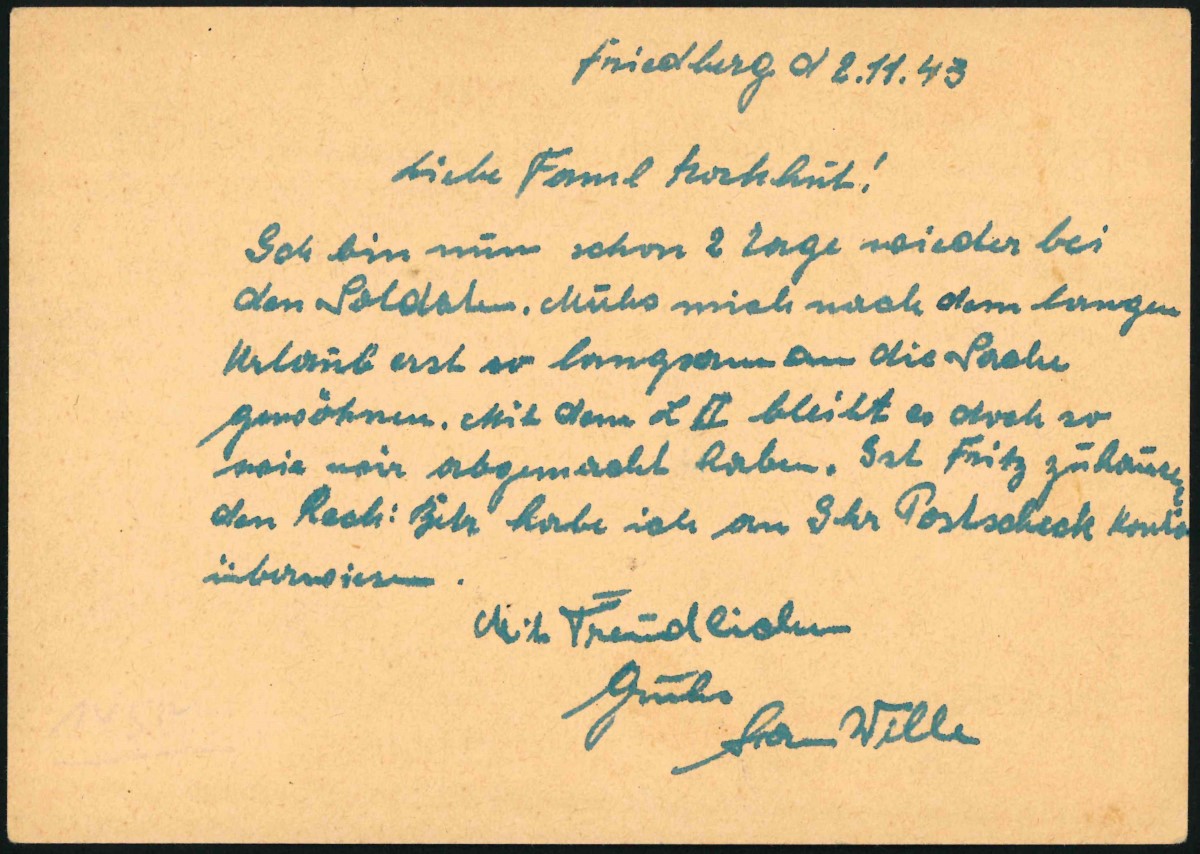 Friedberg d 2.11.43
Liebe Faml
Ich bin nun schon 2 Tage wieder bei
den Soldaten. Muhs mich nach dem langen
Urlaub erst so langsam an die Sache
gewöhnen. Mit dem L II bleibt es doch so
wie wir abgemacht haben. Ist Fritz zuhause?
den Rech: Betr habe ich an Ihr Postscheck Konto
überwiesen.
Mit Freudlichen
Gruhs
Wille